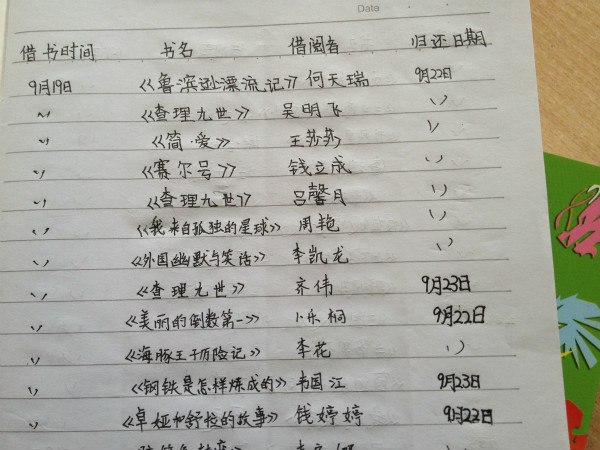 Date
借书时间 书名 借阅者 归还日期
9月19日 《鲁滨逊漂流记》 何天瑞 9月22日
〃 《查理九世》 吴明飞 〃
〃 《简·爱》 王莎莎 〃
〃 《赛尔号》 钱立成 〃
〃 《查理九世》 吕馨月 〃
〃 《我来自孤独的星球》 周艳 〃
〃 《外国幽默与笑话》 李凯龙 〃
〃 《查理九世》 齐伟 9月23日
〃 《美丽的倒数第一》 乐桐 9月22日
〃 《海豚王子历险记》 李花 〃
〃 《钢铁是怎样炼成的》 韦国江 9月23日
〃 《卓娅和舒拉的故事》 钱婷婷 9月22日